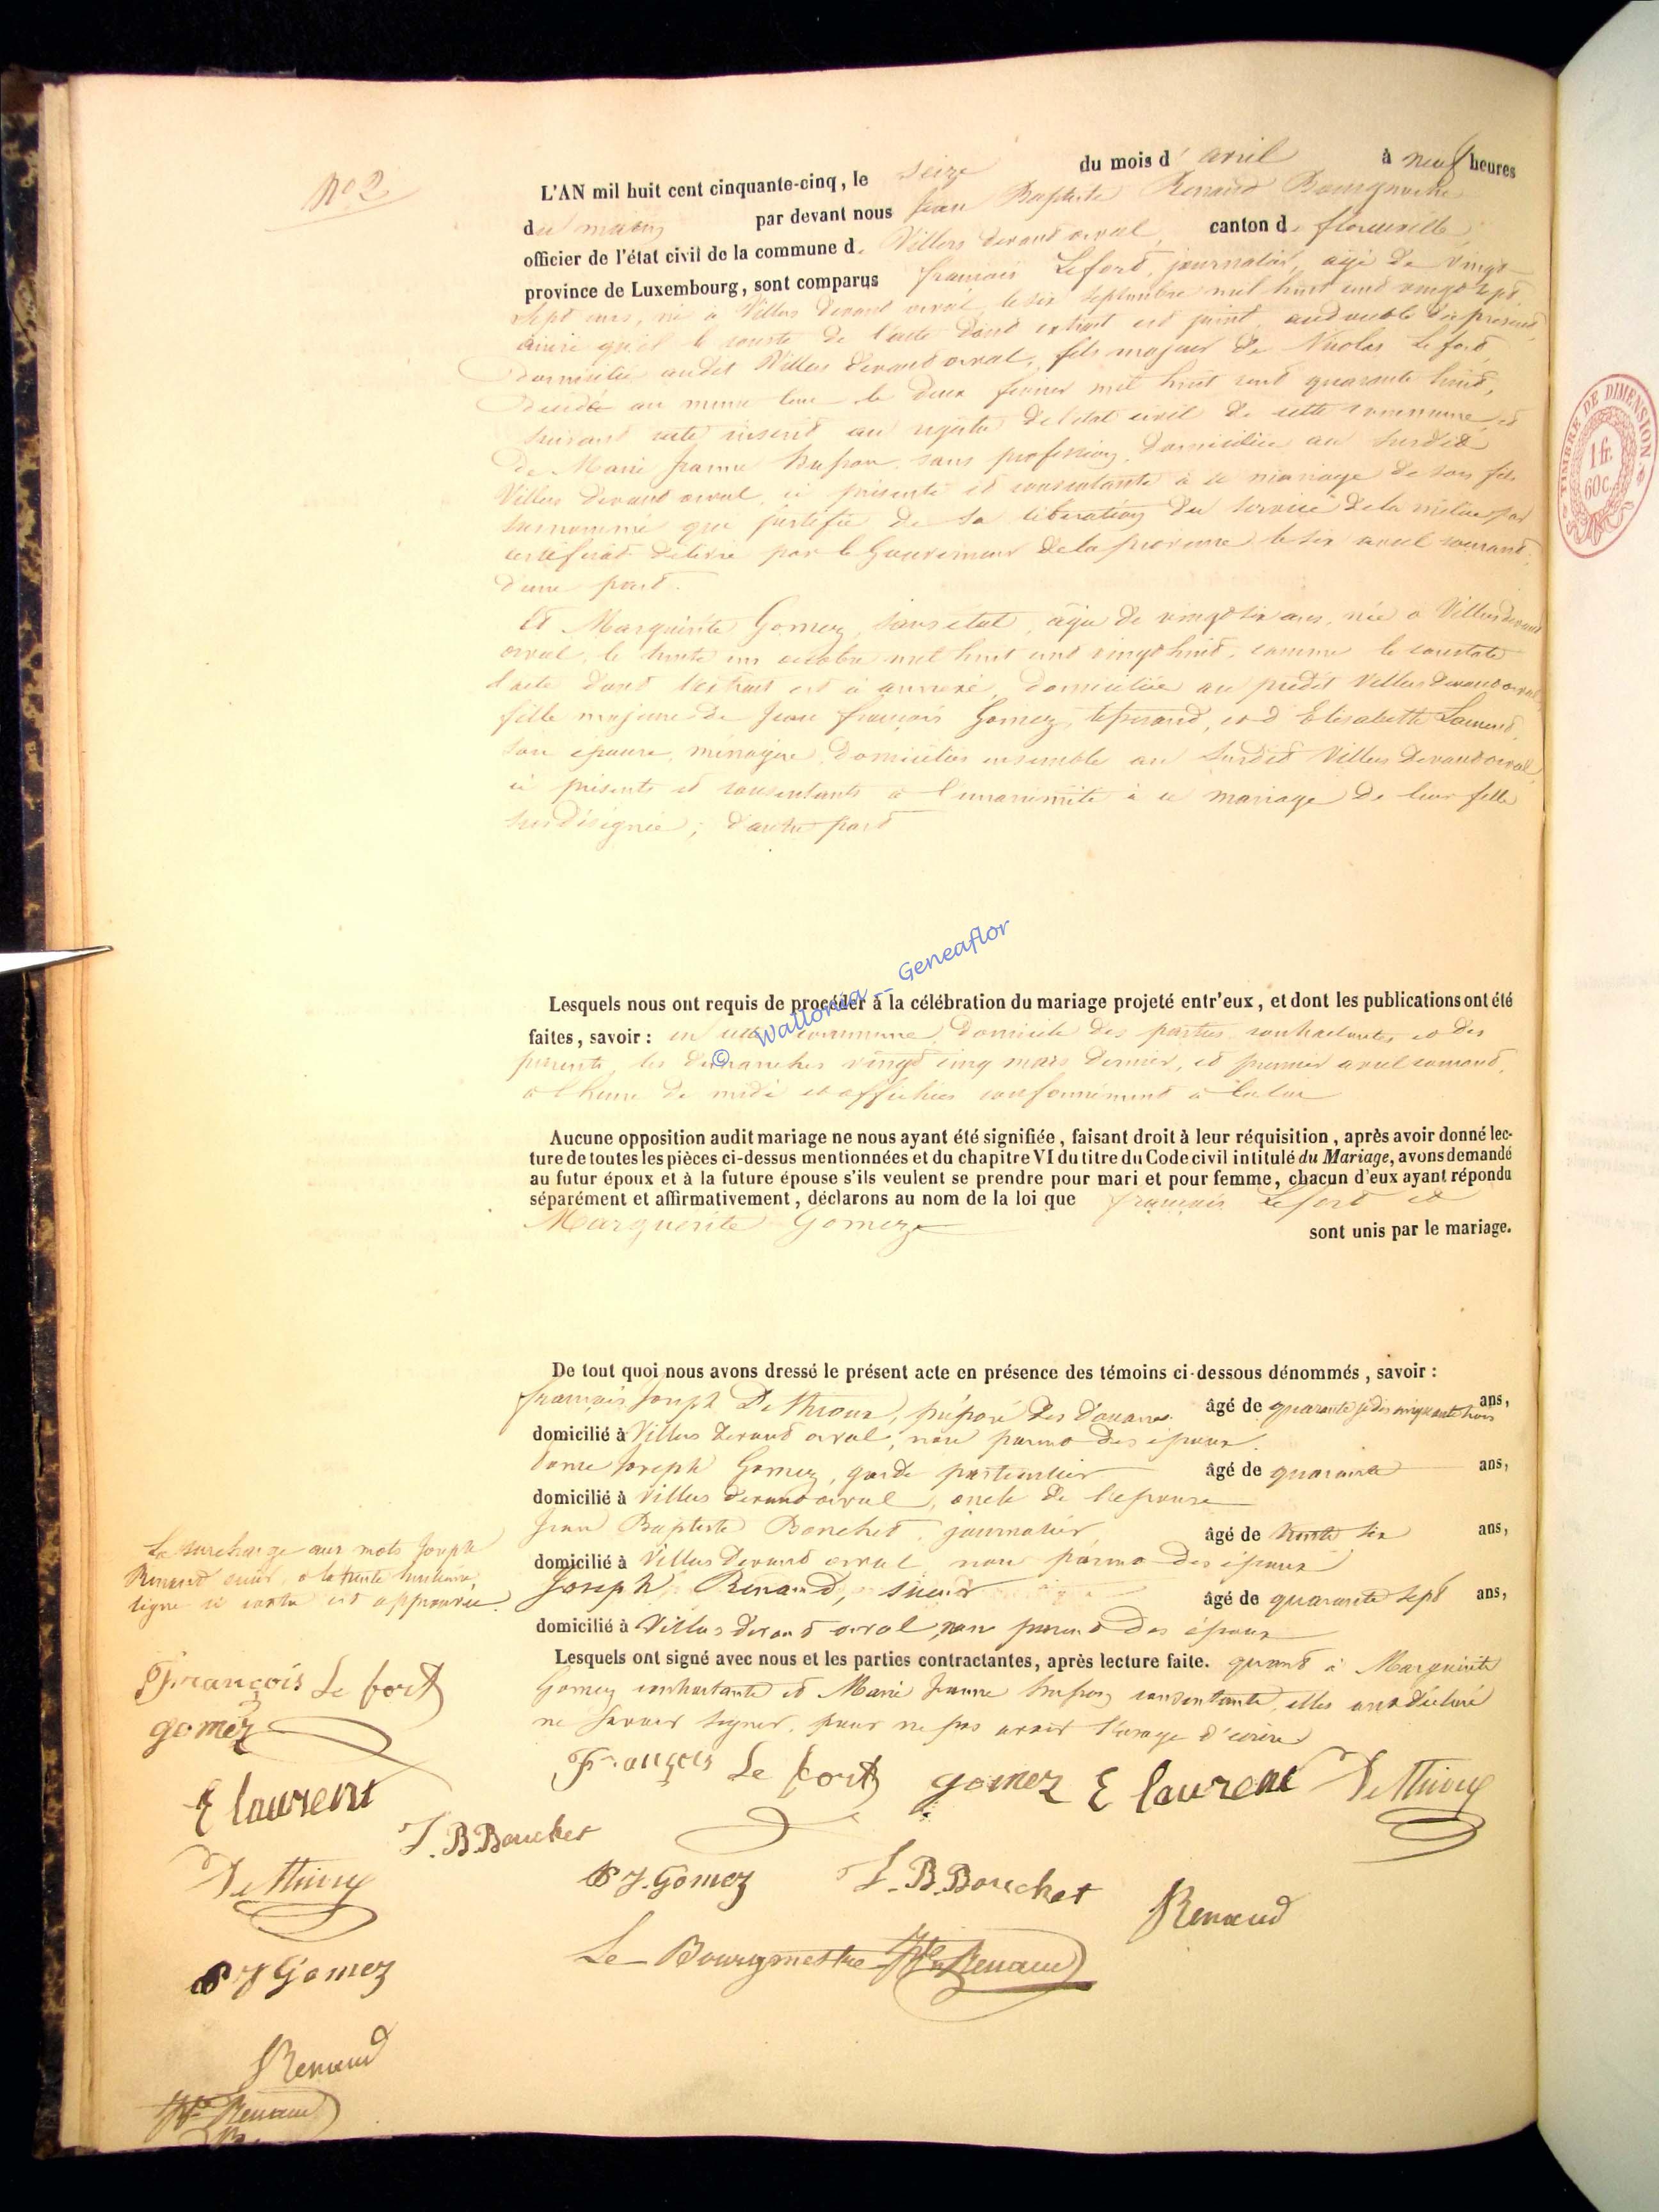 N° 2
L'AN mil huit cent cinquante-cinq, le seize du mois d'avril à neuf heures
du matin par devant nous Jean Baptiste Renaud Bourgmestre
officier de l'état civil de la commune de Villers devant orval, canton de florenville
province de Luxembourg, sont comparus francois Lefort, journalier, agé de vingt
sept ans, né à Villers devant orval, le six septembre mil huit cent vingt sept,
ainsi qu'il le conste de l'acte dont extrait est joint,
domicilié audit Villers devant orval, fils majeur de Nicolas Lefort,
décédé au meme lieu le deux fevrier mil huit cent quarante huit,
suivant acte inscrit au registre de l'etat civil de cette commune, et
de Marie Jeanne sans profession, domiciliée au susdit
Villers devant orval, ici présente et consentante à ce mariage de son fils
surnommé qui justifie de sa libération du service de la milice par
certificat délivré par le Gouverneur de la province le six avril courant,
d'une part.
Et Marguerite Gomez, sans état, agée de vingt six ans, née à Villers devant
orval, le trente un octobre mil huit cent vingt huit, comme le constate
l'acte dont l'extrait est ci annexé, domiciliée au prédit Villers devant orval,
fille majeure de Jean françois Gomez, et d'Elisabeth Laurent,
son epouse, ménagère, domiciliés ensemble au susdit Villers devant orval,
ici présents et consentants à l'unanimité à ce mariage de leur fille
susdésignée; d'autre part
Lesquels nous ont requis de procéder à la célébration du mariage projeté entr'eux, et dont les publications ont été
faites, savoir : en cette commune, domicile des parties contractantes et des
parents, les dimanches vingt cinq mars dernier, et premier avril courant,
à l'heure de midi et affichées conformément à la loi
© Wallonia -- Geneaflor
Aucune opposition audit mariage ne nous ayant été signifiée, faisant droit à leur réquisition, après avoir donné lec-
ture de toutes les pièces ci-dessus mentionnées et du chapitre VI du titre du Code civil intitulé du Mariage, avons demandé
au futur époux et à la future épouse s'ils veulent se prendre pour mari et pour femme, chacun d'eux ayant répondu
séparément et affirmativement, déclarons au nom de la loi que françois Lefort et
Marguerite Gomez
sont unis par le mariage.
De tout quoi nous avons dressé le présent acte en présence des témoins ci-dessous dénommés, savoir :
françois Joseph DeThioux, préposé des douanes âgé de quarante ans,
domicilié à Villers devant orval, non parent des époux.
Joseph Gomez, garde particulier âgé de quarante ans,
domicilié à Villers devant orval, oncle de l'epouse
Jean Baptiste Bouchet, journalier, âgé de trente six ans,
domicilié à Villers devant orval non parent des époux
Joseph Renaud, âgé de quarante sept ans,
domicilié à Villers devant orval, non parent des époux
Lesquels ont signé avec nous et les parties contractantes, après lecture faite. quant à Marguerite
Gomez contractante et Marie Jeanne consentante, elles ont déclaré
ne savoir signer, pour ne pas avoir l'usage d'écrire
La surcharge aux mots Joseph
Renaud à la trente huitieme
ligne ci contre est approuvée.
François Le fort
gomez
E laurent
J. B. Bouchet
J Gomez
Renaud
Renaud
François Le fort gomez E laurent
J. Gomez J. B. Bouchet Renaud
Le Bourgmestre Renaud
TIMBRE DE DIMENSION
1 fr.
60 c.